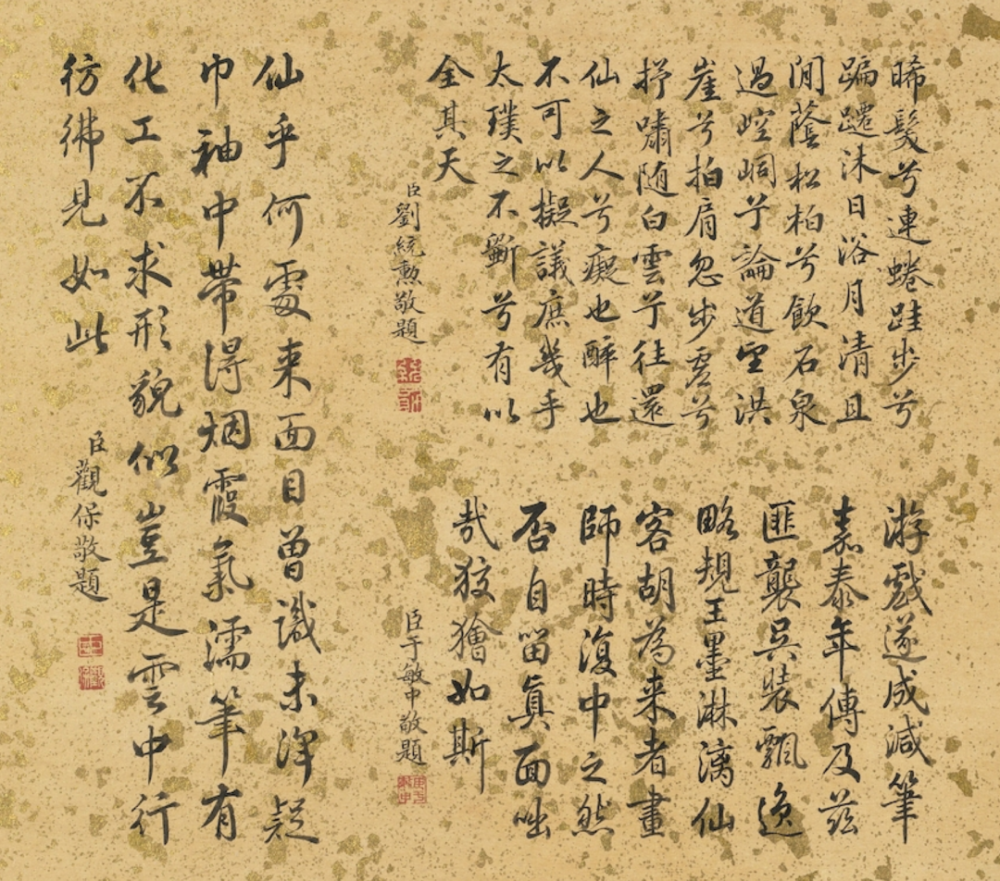 晞髮兮連蜷跬步兮
蹁躚沐日浴月清且
閒蔭松柏兮飲石泉
過崆峒兮論道望洪
崖兮拍肩忽步虛兮
抒嘯随白雲兮往還
仙之人兮癡也醉也
不可以擬議庶幾乎
太璞之不斷兮有以
全其天
臣劉統勳敬題
游戲遂成減筆
嘉泰年傳及茲
匪襲吳裝飄逸
略規王墨淋漓仙
客胡為来者畫
師時復中之然
否自留真面咄
哉狡獪如斯
臣于敏中敬題
仙乎何處来面目曾識未渾疑
巾袖中帶得烟霞氣濡筆有
化工不求形貌似豈是雲中行
彷彿見如此
臣觀保敬題